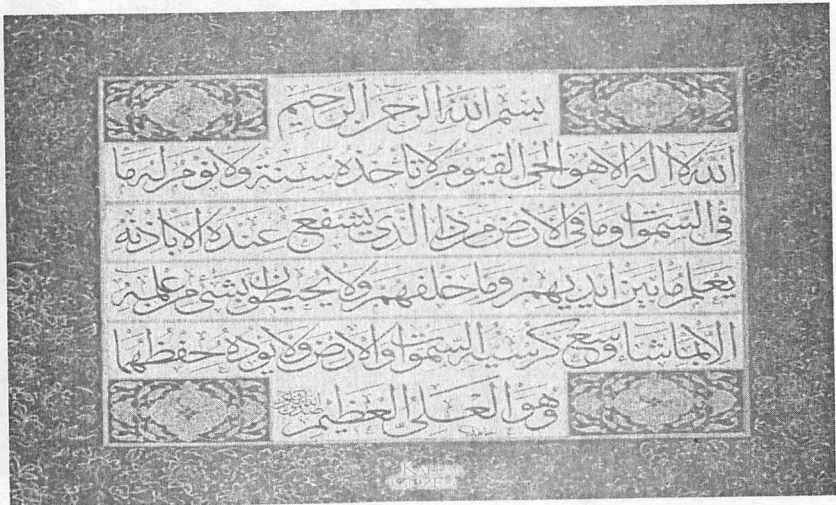 بسم الله الرحمن الرحيم
الله لا اله الا هو الحي القيوم لا تأخذه سنة ولا نوم له ما
في السموات وما في الارض من ذا الذي يشفع عنده الا باذنه
يعلم ما بين ايديهم وما خلفهم ولا يحيطون بشئ من علمه
الا بما شاء وسع كرسيه السموات والارض ولا يوده حفظهما
وهو العلي العظيم
KALEM
GÜZELİ